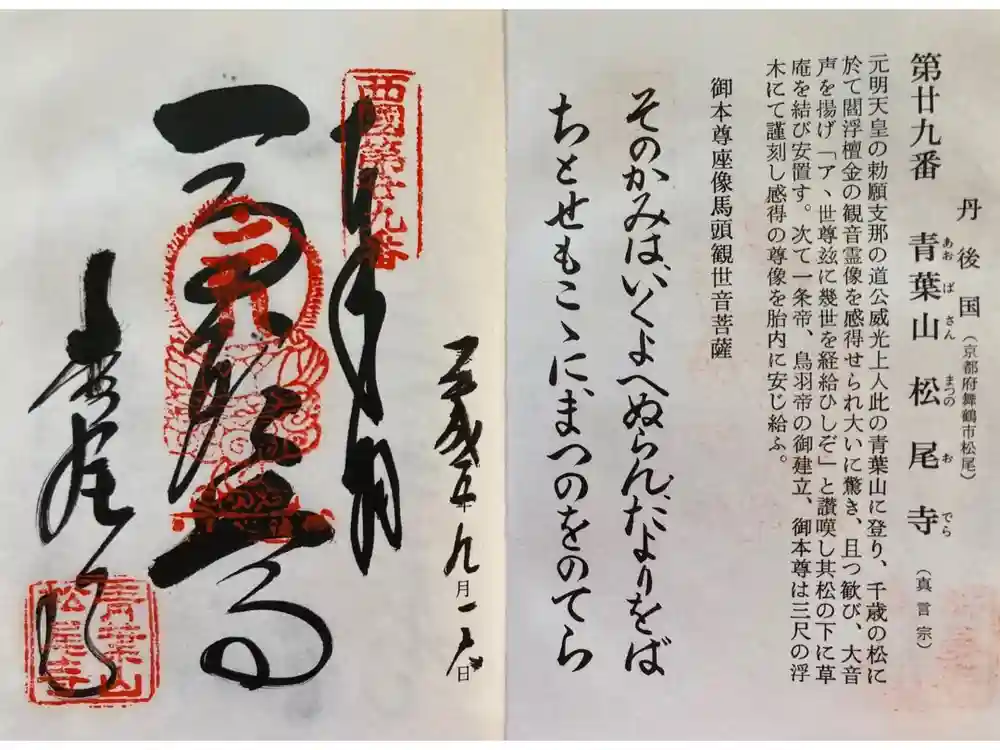 丹後国（京都府舞鶴市松尾）
第廿九番 青葉山 松尾寺（真言宗）
あおばさん まつのおでら
元明天皇の勅願支那の道公威光上人此の青葉山に登り、千歳の松に
於て閻浮檀金の観音霊像を感得せられ大いに驚き、且つ歓び、大音
声を揚げ「アヽ世尊玆に幾世を経給ひしぞ」と讃嘆し其松の下に草
庵を結び安置す。次て一条帝、鳥羽帝の御建立、御本尊は三尺の浮
木にて謹刻し感得の尊像を胎内に安じ給ふ。
御本尊座像馬頭観世音菩薩
そのかみは、いくよへぬらん、たよりをば
ちとせもこゝにまつのをのてら
九月一
日
西國第廿九番
松尾寺
青葉山
松尾寺